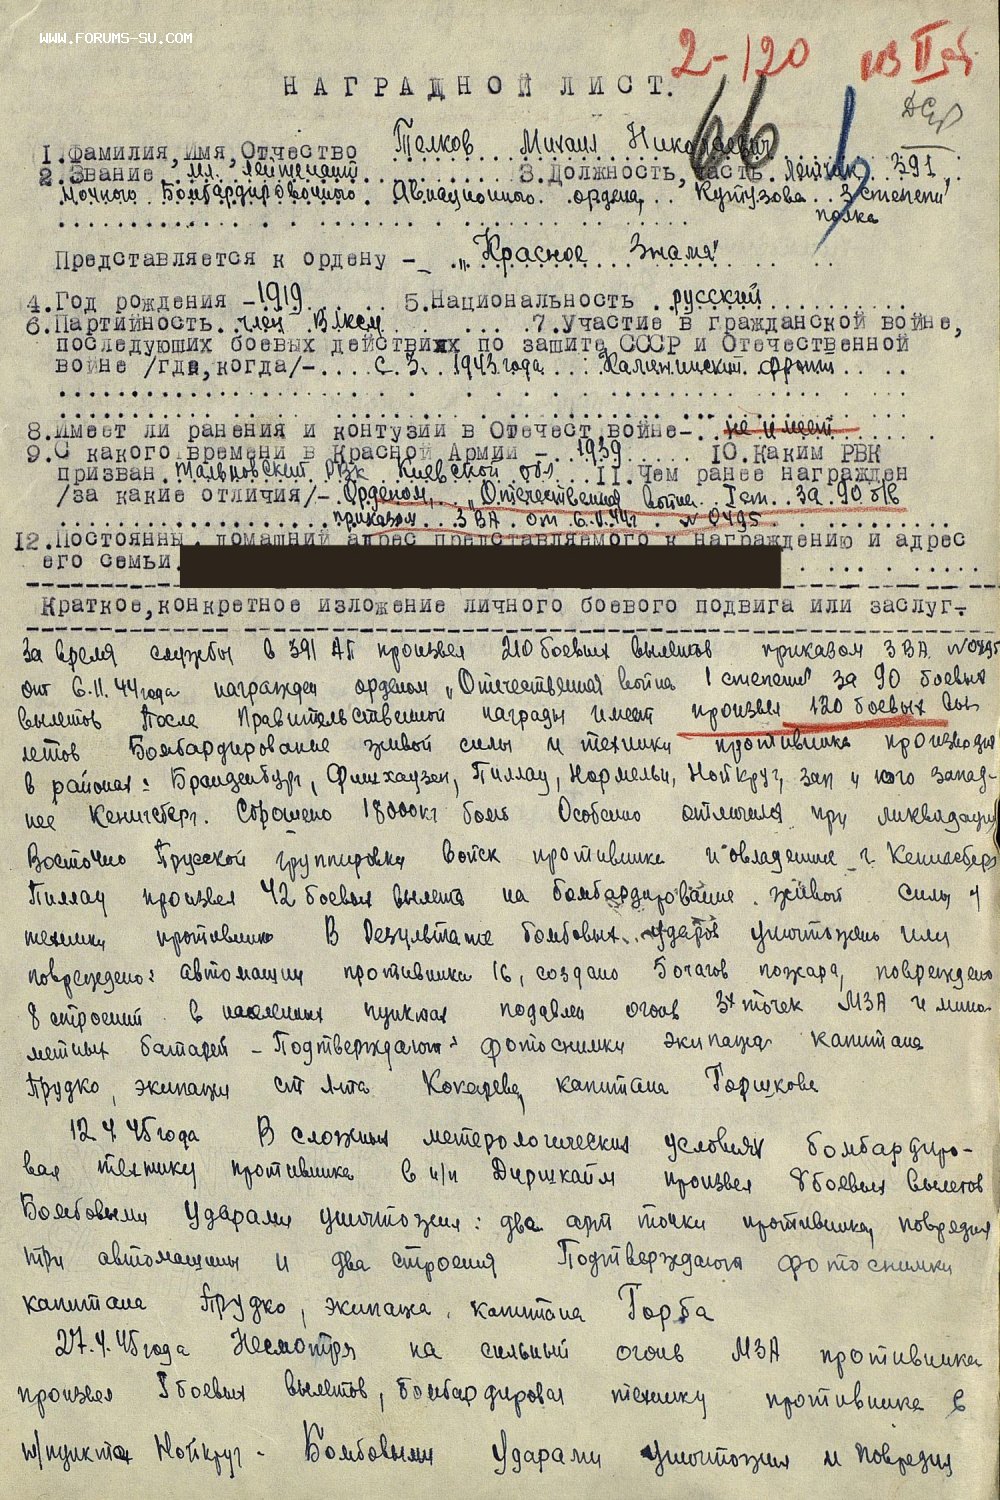 WWW.FORUMS-SU.COM
2-120
НАГРАДНОЙ ЛИСТ.
66
1. Фамилия, Имя, Отчество Телков Михаил Николаевич
2. Звание мл. лейтенант 3. Должность, часть. Летчик 391
Ночного Бомбардировочного Авиационного ордена Кутузова 3 степени
полка
Представляется к ордену - „Красное Знамя"
4. Год рождения - 1919 5. Национальность русский
6. Партийность член ВЛКСМ 7. Участие в гражданской войне,
последующих боевых действиях по защите СССР и Отечественной
войне /где, когда/- с 3. 1943 года Калининский фронт
8. Имеет ли ранения и контузии в Отечест. войне- не имеет
9. С какого времени в Красной Армии - 1939 10. Каким РВК
призван. Тальновский РВК Киевской обл 11. Чем ранее награжден
/за какие отличия/- Орденом „Отечественная война I ст. за 90 б/в
приказом 3 ВА от 6.11.44г № 0495
12. Постоянны. домашний адрес представляемого к награждению и адрес
его семьи.
Краткое, конкретное изложение личного боевого подвига или заслуг.-
За время службы в 391 АП произвел 210 боевых вылетов приказом 3 ВА №0495
от 6.11.44 года награжден орденом „Отечественная война 1 степени" за 90 боевых
вылетов После Правительственной награды имеет произвел 120 боевых вы-
летов Бомбардирование живой силы и техники противника производил
в районах: Бранденбург, Фишхаузен, Пиллау, Нормельн, Нойкруг, зап и юго запад-
нее Кенигсберг. Сброшено 18000кг бомб Особенно отличился при ликвидации
Восточно Прусской группировки войск противника и овладение г. Кенигсберг
Пиллау произвел 42 боевых вылета на бомбардирование живой силы и
техники противника В результате бомбовых ударов уничтожено или
повреждено: автомашин противника 16, создано 5 очагов пожара, повреждено
8 строений в населенных пунктах подавлен огонь 3х точек МЗА и мино-
метных батарей - Подтверждают: фотоснимки экипажа капитана
Прудко, экипажи ст л-та Кокарева, капитана Горшкова
12.4.45 года В сложных метерологических условиях бомбардиро-
вал технику противника в н/п Диршкайм произвел 8 боевых вылетов
Бомбовыми ударами уничтожил: два арт точки противника, повредил
три автомашины и два строения Подтверждают фотоснимки
капитана Прудко, экипажа капитана Горба
27.4.45 года Несмотря на сильный огонь МЗА противника
произвел боевых вылетов, бомбардировал технику противника в
н/пункта Нойкруг - Бомбовыми ударами уничтожил и повредил